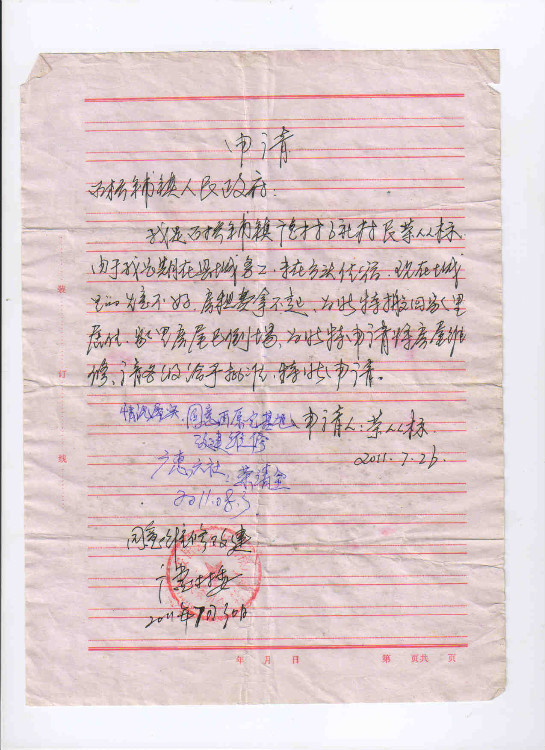 申请
石桥铺镇人民政府：
我是石桥铺镇广村六社村民荣从标
由于我长期在县城务工，并在方法住宿，现在城
里的为意不好，房租费拿不起，为此特搬回家里
居住，家里房屋已倒塌，为此特申请将房屋维
修，请各级给予批准，特此申请。
情况属实，同意再原宅基地
改建维修
申请人：荣从标
2011.7.26
广惠六社：荣清
2011.08.3
同意维修改建
广惠村委
2011年7月30日
装
订
线
年 月 日
第 页共 页